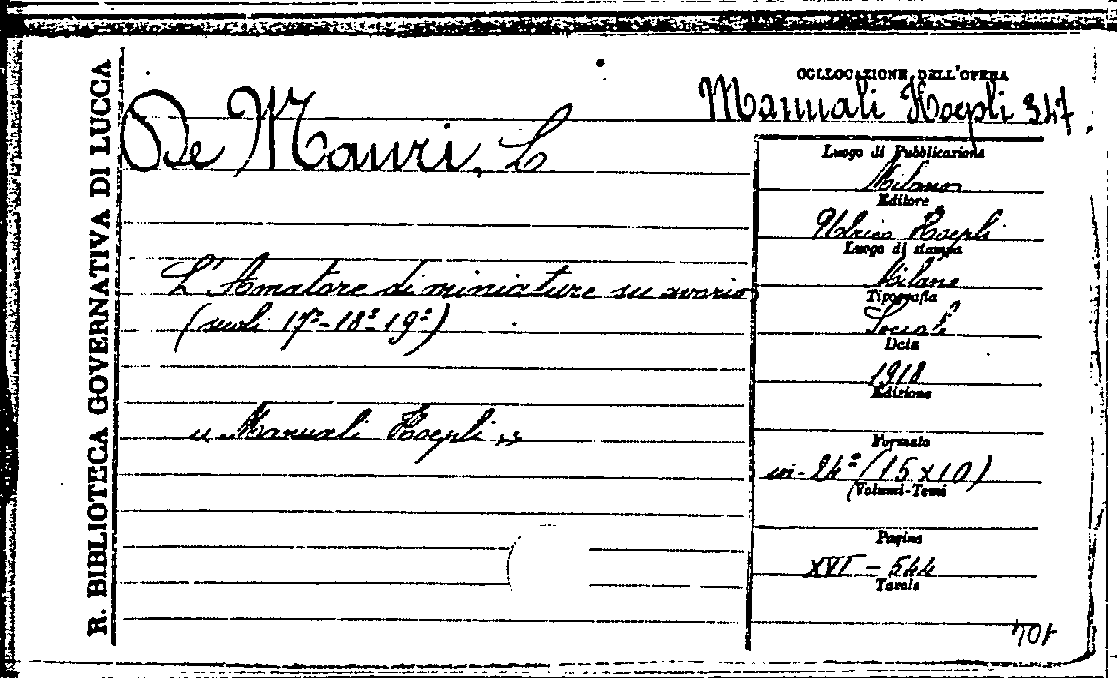 R. BIBLIOTECA GOVERNATIVA DI LUCCA
COLLOCAZIONE DELL'OPERA
Manuali Hoepli 347.
De Mauri, L
L'Amatore di miniature su avorio
(secoli 17º-18º-19º)
« Manuali Hoepli »
Luogo di Pubblicazione
Milano
Editore
Ulrico Hoepli
Luogo di stampa
Milano
Tipografia
Sociale
Data
1918
Edizione
Formato
in-24º (15x10)
(Volumi-Tomi
Pagine
XVI - 544
Tavole